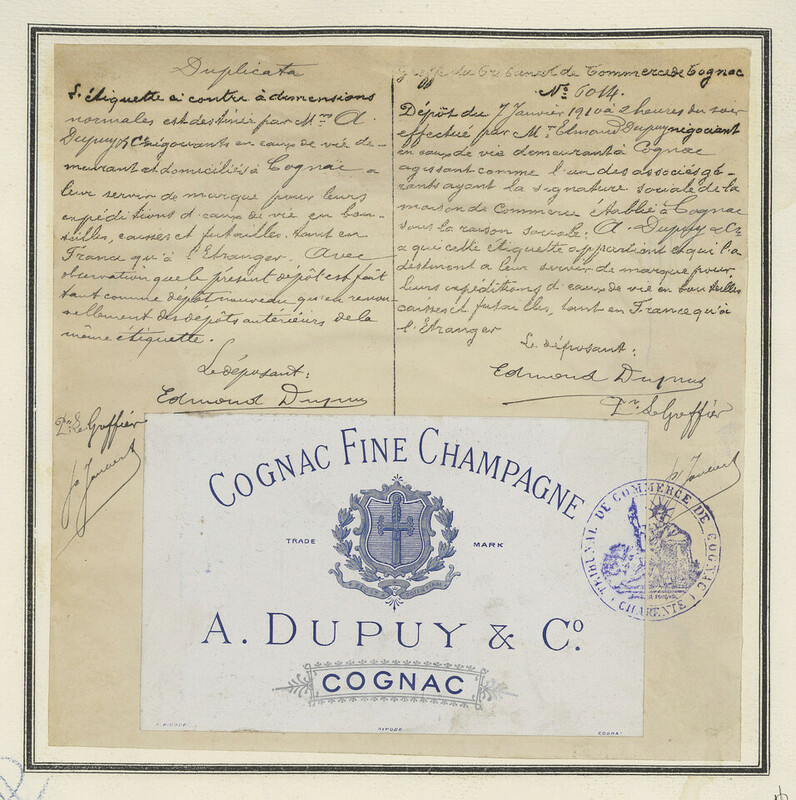 Duplicata
L'étiquette ci contre à dimensions
normales est destinée par Mrs A.
Dupuy & Cie négociants en eaux de vie de-
meurant et domiciliés à Cognac a
leur servir de marque pour leurs
expéditions d'eaux de vie en bou-
teilles, caisses et futailles, tant en
France qu'à l'Etranger. Avec
observation que le présent dépôt est fait
tant comme dépôt nouveau qu'en renou-
vellement des dépôts antérieurs de la
même étiquette.
Le déposant:
Edmond Dupuy
Le Greffier
Greffe du Tribunal de Commerce de Cognac
No 6014.
Dépôt du 7 Janvier 1910 à 2 heures du soir
effectué par Mr Edmond Dupuy négociant
en eaux de vie demeurant à Cognac
agissant comme l'un des associés gé-
rants ayant la signature sociale de la
maison de Commerce établie à Cognac
sous la raison sociale: A. Dupuy & Cie
a qui cette étiquette appartient et qui l'a
destinent a leur servir de marque pour
leurs expéditions d'eaux de vie en bouteilles
caisses et futailles, tant en France qu'à
l'Etranger
Le déposant:
Edmond Dupuy
Le Greffier
COGNAC FINE CHAMPAGNE
TRADE MARK
A. DUPUY & Co.
COGNAC
TRIBUNAL DE COMMERCE DE COGNAC
CHARENTE